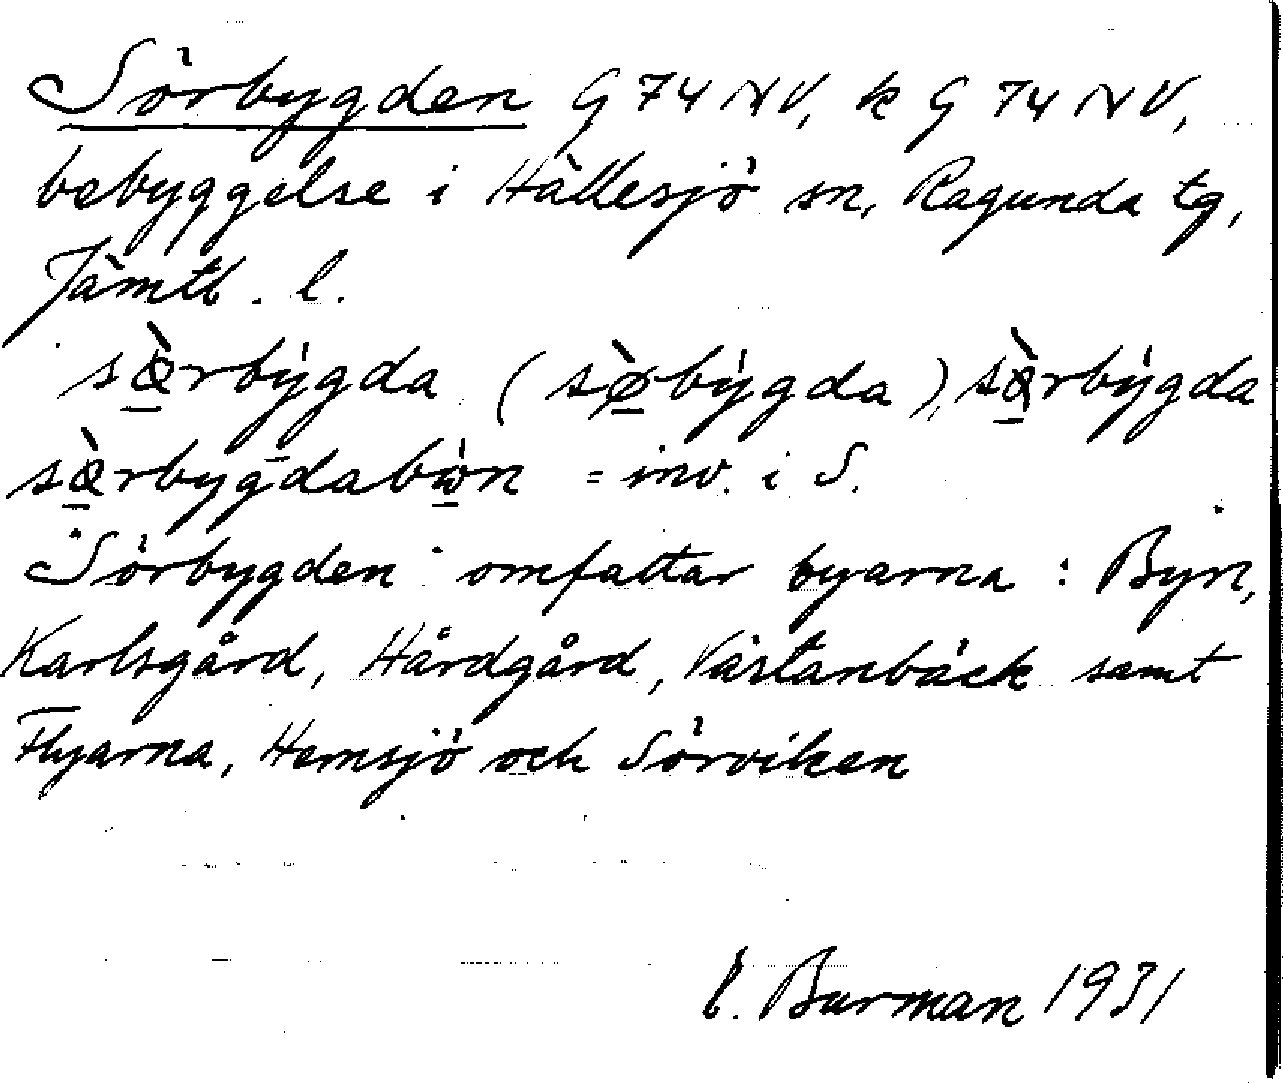 Sörbygden G 74 NV, k G 74 NV,
bebyggelse i Hällesjö sn, Ragunda tg,
Jämtl. l.
sø̀rbýgda (sø̀býgda), sø̀rbýgda
sø̀rbygdabẃn = inv. i S.
Sörbygden omfattar byarna: Byn,
Karlsgård, Hårdgård, Västanbäck samt
Flyarna, Hemsjö och Sörviken
E. Burman 1931